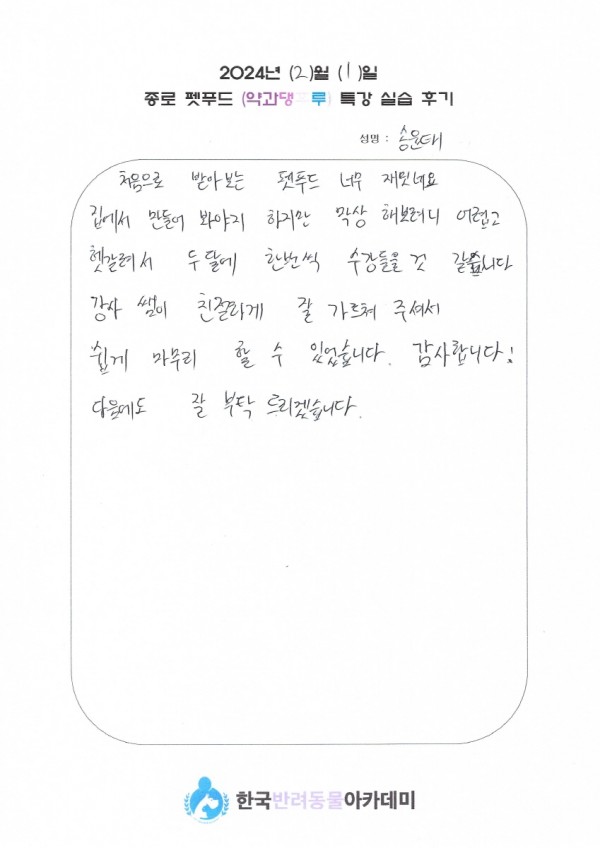 2024년 (2)월 (1)일
종로 펫푸드 (약과댕 루) 특강 실습 후기
성명 : 송윤태
처음으로 받아보는 펫푸드 너무 재밋네요
집에서 만들어 봐야지 하지만 막상 해보려니 어렵고
헷갈려서 두달에 한번씩 수강들을것 같습니다
강사 쌤이 친절하게 잘 가르쳐 주셔서
쉽게 마무리 할 수 있었습니다. 감사합니다!
다음에도 잘 부탁 드리겠습니다.
한국반려동물아카데미